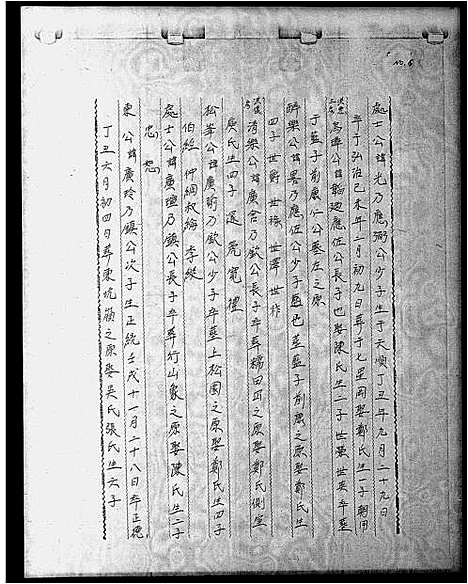 NO. 6
處士公諱光乃應弼公少子生于天順丁丑年九月二十九日
卒于弘治己未年二月初九日葬于七星岡娶鄭氏生一子朝用
公諱 應任公長子也娶陳氏生二子世強世英卒墓
于藍子前康仁公墓左之原
醉樂公諱畧乃應任公少子墓也葬藍子前鳳之原娶鄭氏生
四子世爵世祿世澤世祚
清樂公諱廣含乃欽公長子卒葬楊田凹之原娶鄭氏側室
吳氏生四子 寬禮
松峯公諱廣瑜乃欽公少子卒墓上松園之原娶鄭氏生四子
伯經仲綱叔綸季縱
處士公諱廣瓊乃鎮公長子卒葬行山象之原娶陳氏生二子
忠恕
東 公諱廣玲乃鎮公次子生正統壬戌十一月二十八日卒正德
丁丑六月初四日葬東坑 之原娶吳氏張氏生六子